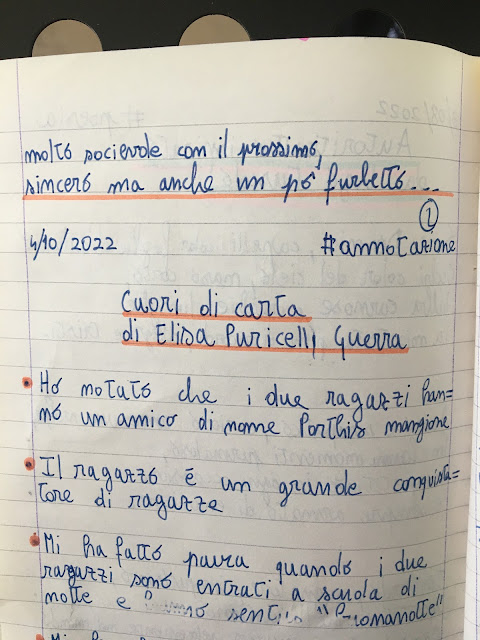 molto socievole con il prossimo,
sincero ma anche un pó furbetto...
1
4/10/2022 #annotazione
Cuori di carta
di Elisa Puricelli Guerra
• Ho notato che i due ragazzi han=
no un amico di nome Porthis mangione
• Il ragazzo é un grande conquista=
tore di ragazze
• Mi ha fatto paura quando i due
ragazzi sono entrati a scuola di
notte e